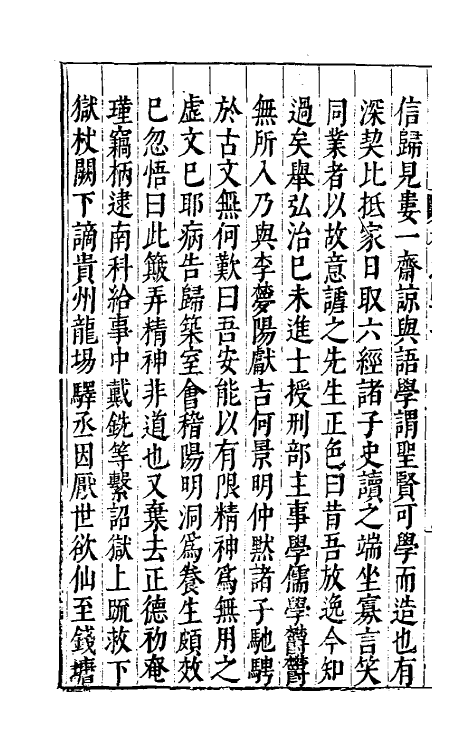 信歸見婁一齋諒與語學謂聖賢可學而造也有
深契比抵家日取六經諸子史讀之端坐寡言笑
同業者以故意謔之先生正色曰昔吾放逸今知
過矣舉弘治巳未進士授刑部主事學儒學鬱鬱
無所入乃與李夢陽獻吉何景明仲默諸子馳騁
於古文無何歎曰吾安能以有限精神爲無用之
虛文巳耶病告歸築室會稽陽明洞爲養生頗效
巳忽悟曰此簸弄精神非道也又棄去正德初奄
瑾竊柄逮南科給事中戴銑等繫詔獄上䟽救下
獄杖闕下謫貴州龍場驛丞因厭世欲仙至錢塘